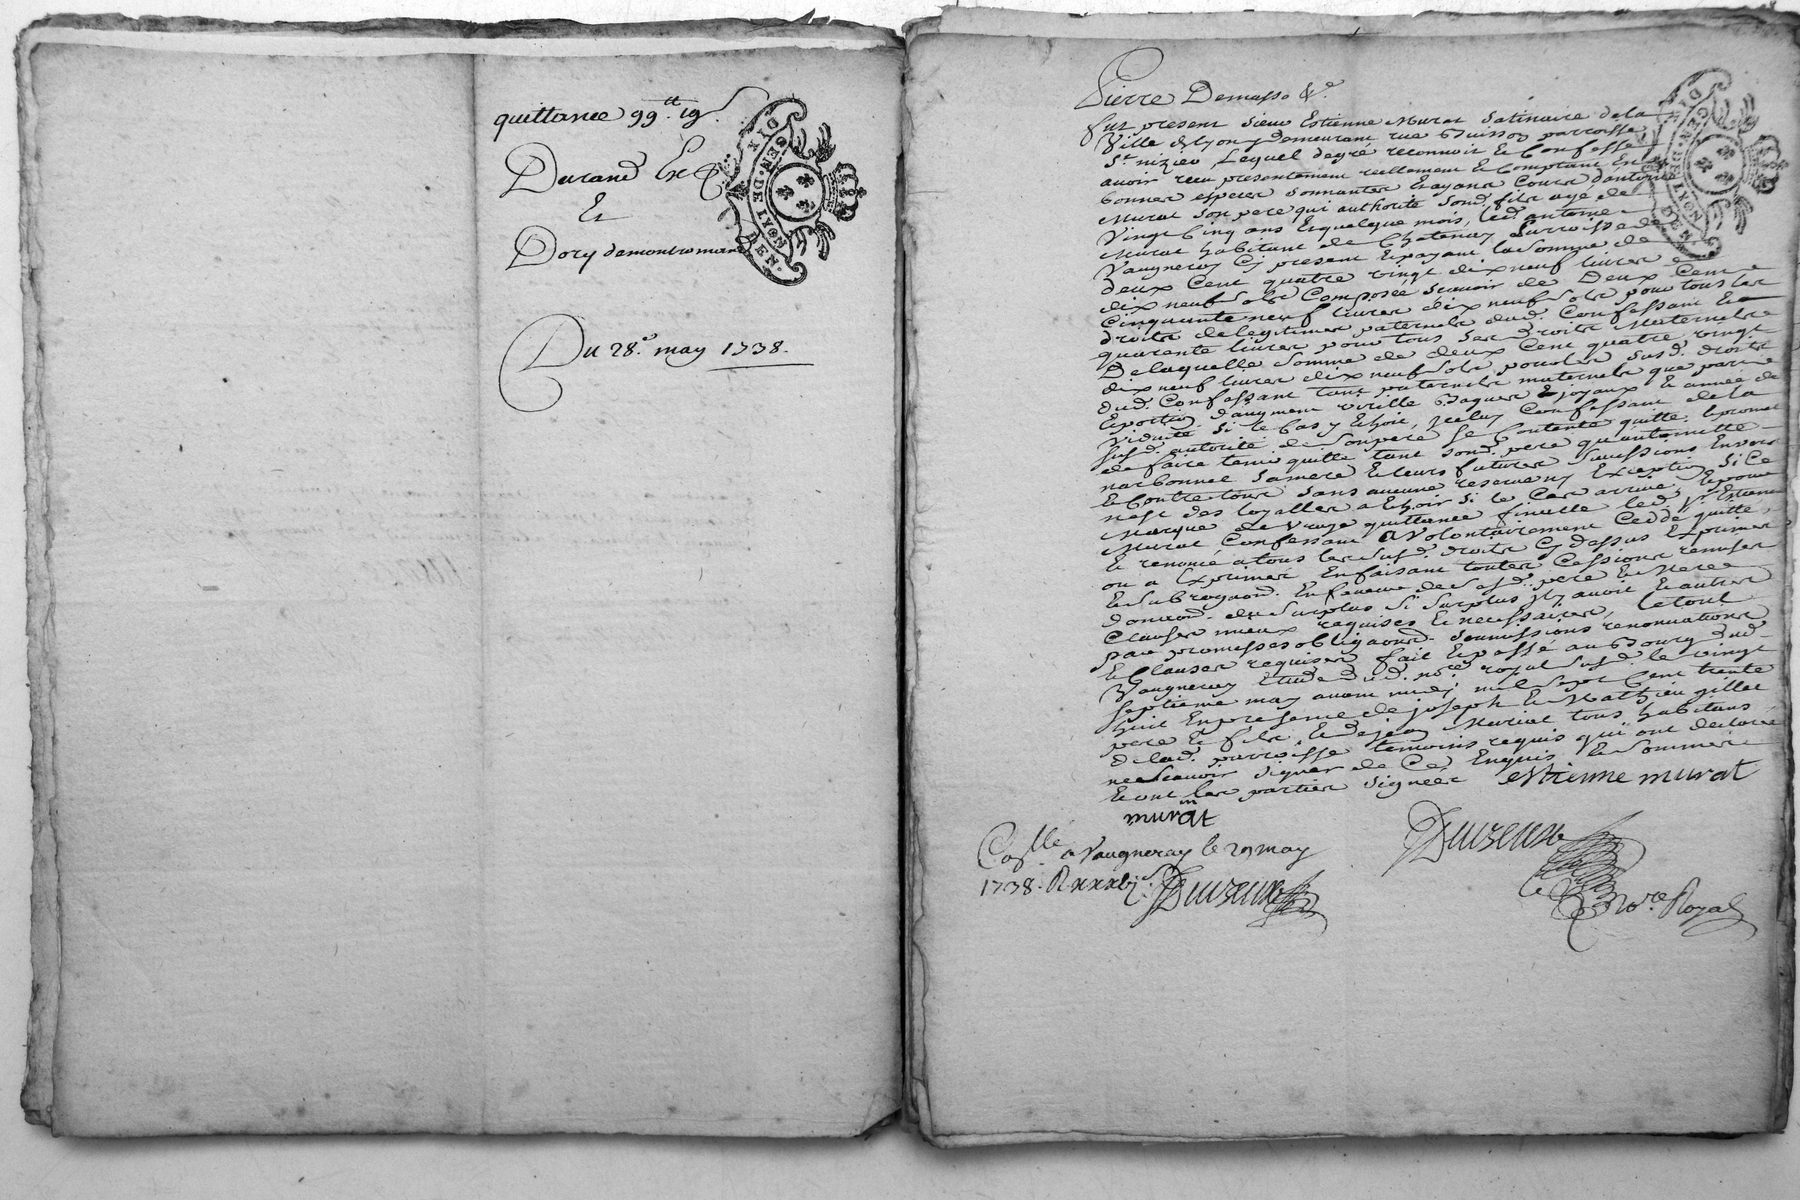 quittance 99.tt 19s
Durand Ex
Et
Dory demontromand
Du 28.e may 1738.
DIX DEN.
SEN. DE LYON
Pierre Demasso &c.
fut present sieur Estienne Murat satinaire de la
Ville de Lyon y demeurant rue Buisson parroisse
St nizier Lequel degré reconnoit et Confesse
avoir reçu presentement reellement et Comptant En
bonnes especes sonnantes Et ayans Cours dantoine
Murat son pere qui authorise sond. fils agé de
Vingt Cinq ans Et quelque mois, led. antoine
Murat habitant de Chatenay parroisse de
Vaugneray Cy present Et payant la somme de
deux Cent quatre vingt dix neuf livres
dix neuf sols Composée scavoir de Deux Cent
Cinquante neuf livres dix neuf sols pour tous les
droits de legitimes paternels dud. Confessant Et
quarente livres pour tous ses droits Maternels
De laquelle somme de deux Cent quatre vingt
dix neuf livres dix neuf sols pour les susd. droits
dud. Confessant tant paternels maternels que par
Exportion daugment virille Bagues Et joyaux Et année de
viduité si le Cas y Echoit, jceluy Confessant de la
susd. autorité de son pere se Contente quitte Et promet
de faire tenir quitte tant sond. pere qu'antoinette
narbonnet sa mere Et leurs futures sucessions Envers
Et Contre tous sans aucune reserve ny Exception si Ce
n'est des loyalles a Echoir si le Cas arrive, Et pour
Marque de vraye quittance finalle led. sr. Estienne
Murat Confessant a volontairement Ceddé quitté,
Et renoncé a tous les susd. droits Cy dessus Exprimes
ou a Exprimer En faisant toutes Cessions remises
Et subrogaons. En faveur de sesd. pere Et Mere
donnaon. du surplus si surplus jl y avoit Et autres
Clauses mieux requises Et necessaires, Le tout
par promesses obligaons. soumissions renonciations
Et Clauses requises fait Et passé au Bourg dud.
Vaugneray Etude dud. nore. royal susd. le vingt
septieme may avant midy mil sept Cent trente
huit En presence de joseph Et Mathieu gillet
pere Et fils, Et de jean Muriat tous habitans
de lad. parroisse temoins requis qui ont declaré
ne scavoir signer de Ce Enquis Et sommés
Et ont les parties signées estienne murat
murat
Duvzeux
Collé. a Vaugneray le 29 may
1738. R xxxbj s. Duvzeux
Nore. Royal
DIX DEN.
SEN. DE LYON